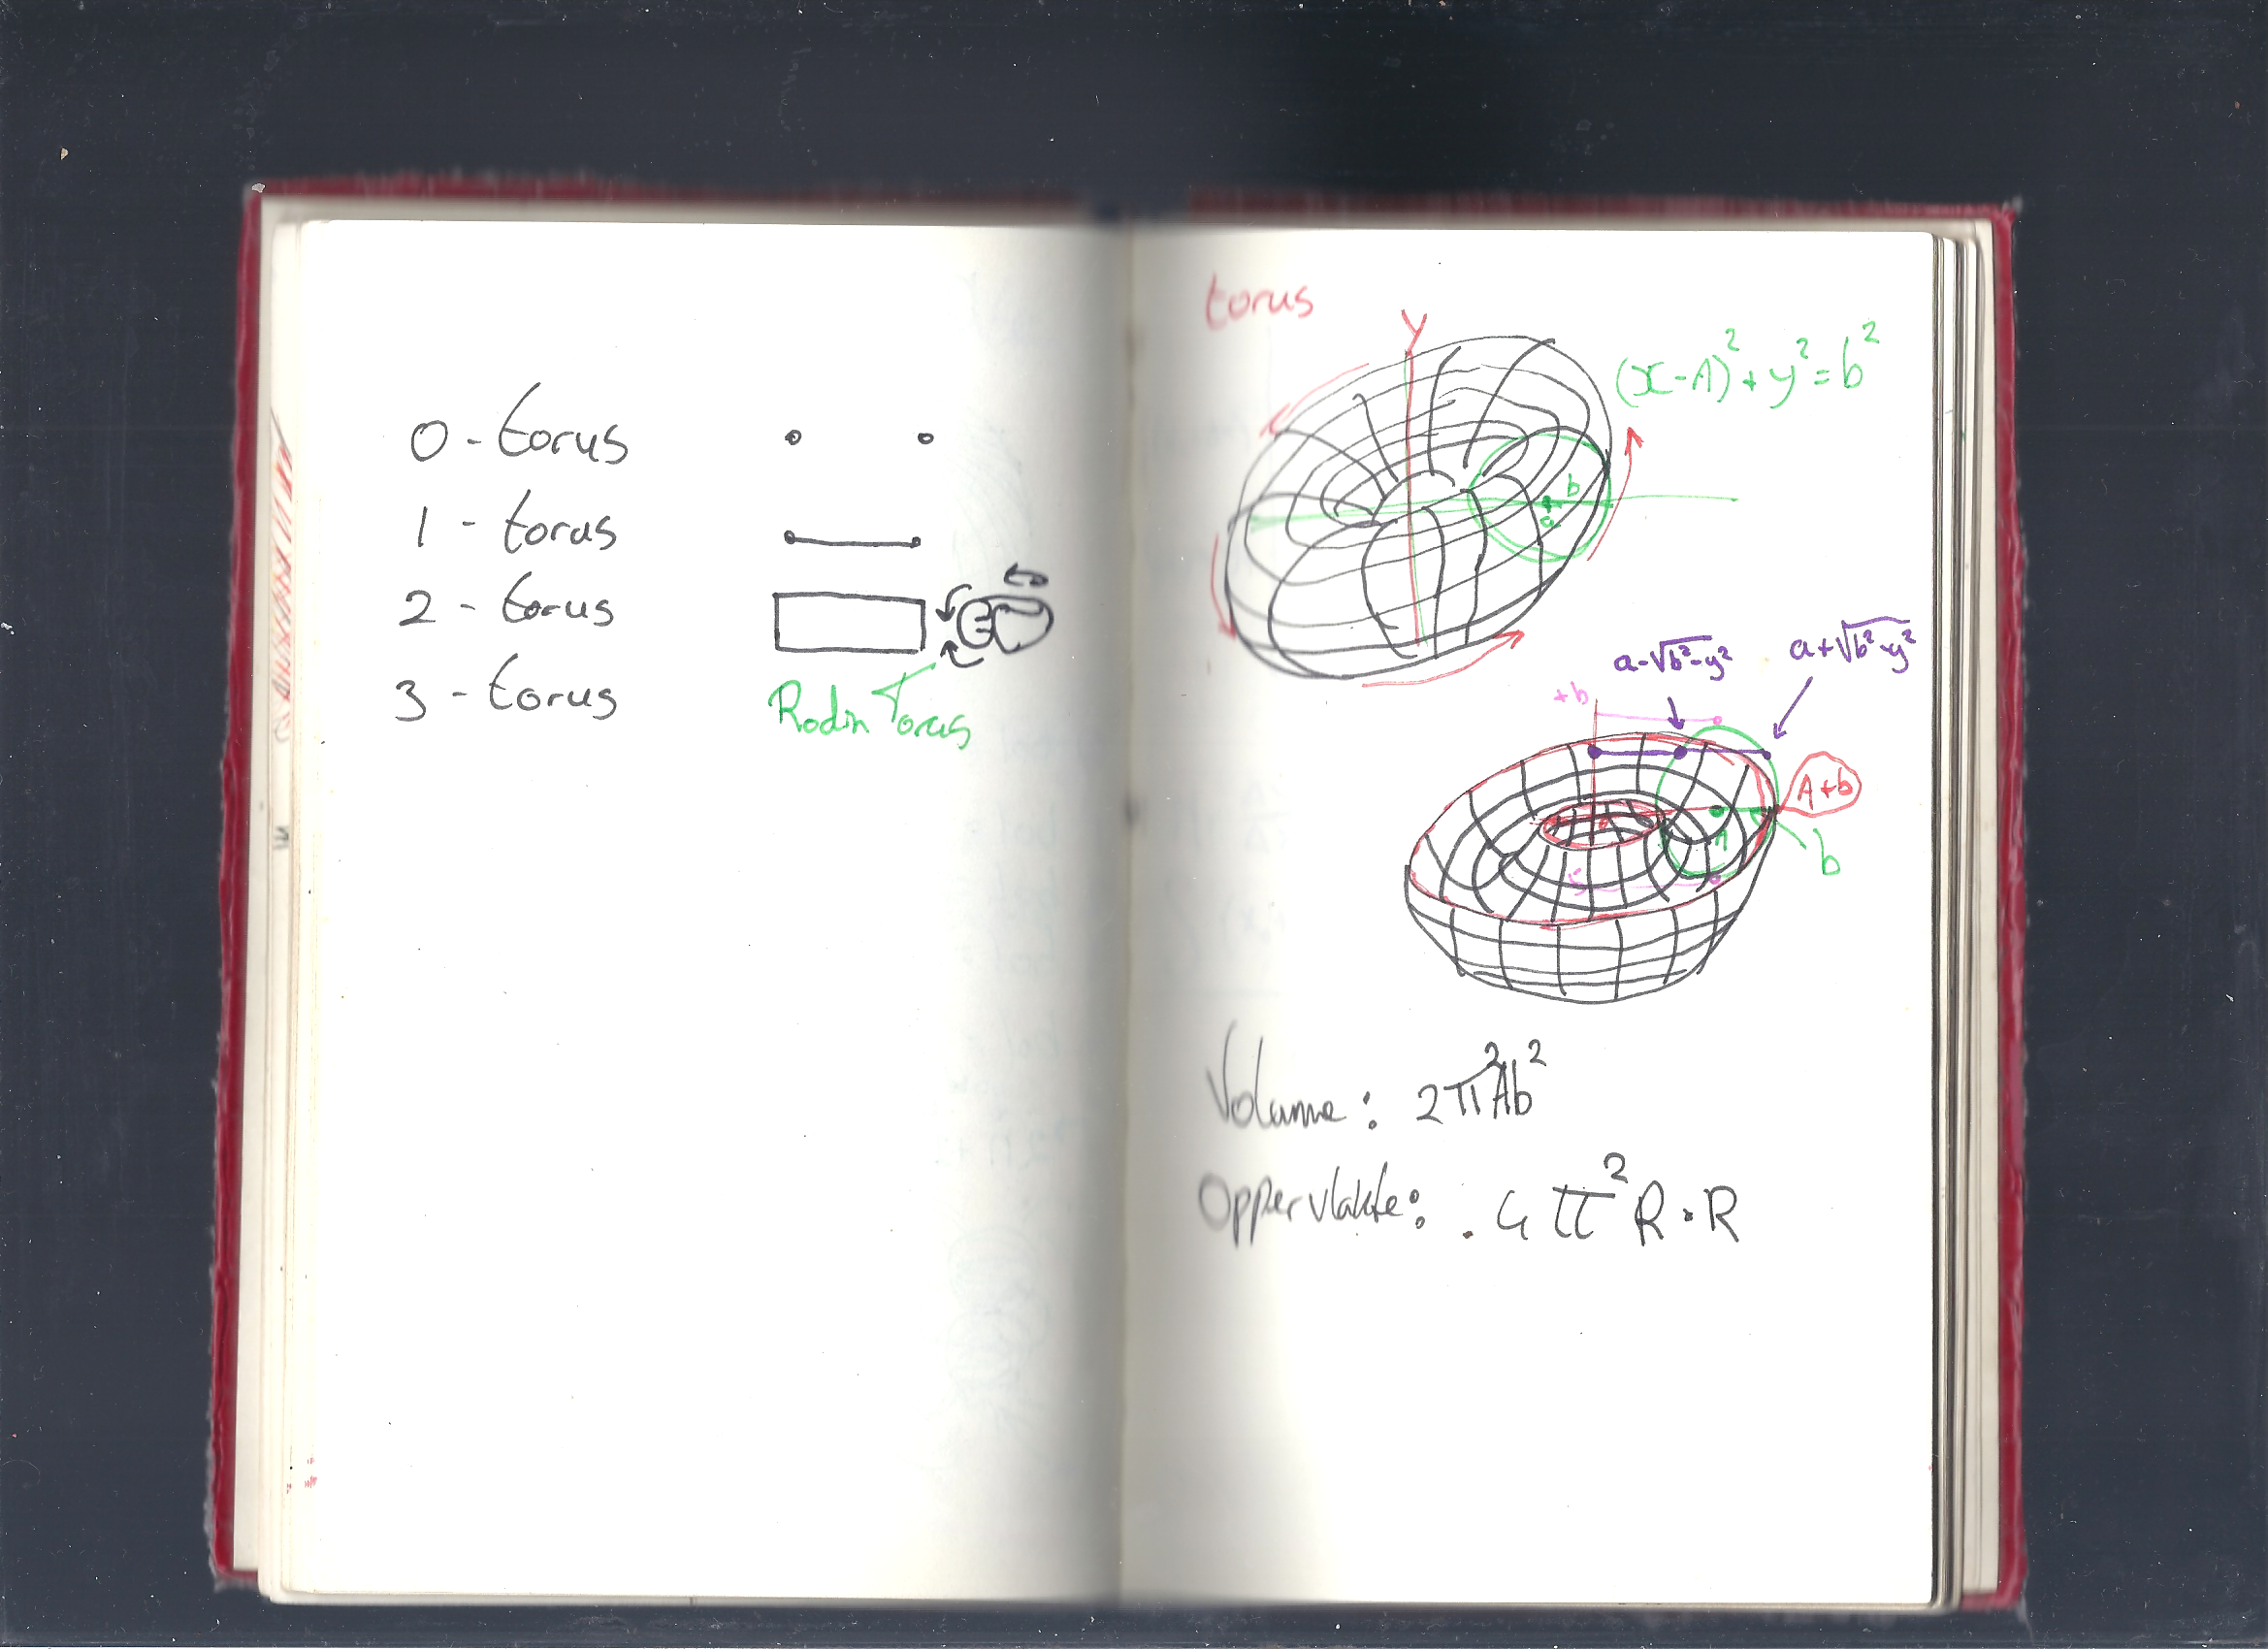 0 - torus
1 - torus
2 - torus
3 - torus
Rodin Torus
torus
Y
(x-A)² + y² = b²
b
a
a-√b²-y²
a+√b²-y²
+b
A+b
A
b
Volume: 2π²Ab²
Oppervlakte: 4π²R·R